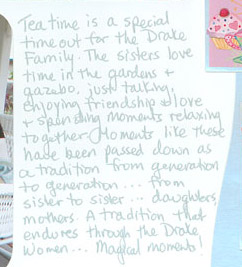 Tea time is a special
time out for the Drake
Family. The sisters love
time in the gardens +
gazebo, just talking,
enjoying friendship & love
+ spending moments relaxing
together. Moments like these
have been passed down as
a tradition from generation
to generation... from
sister to sister... daughters,
mothers. A tradition that
endures through the Drake
Women... Magical moments!